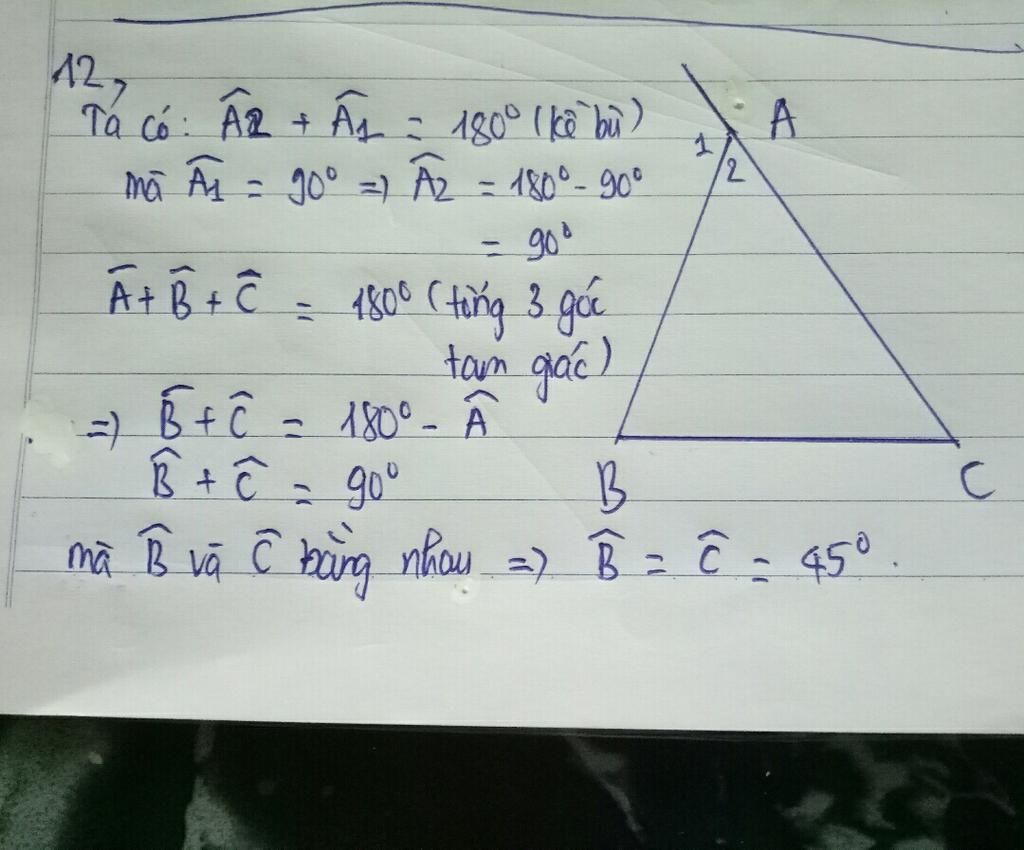 12,
Ta có: Â2 + Â1 = 180° (kề bù)
mà Â1 = 90° => Â2 = 180° - 90°
= 90°
Â + B̂ + Ĉ = 180° (tổng 3 góc
tam giác)
=> B̂ + Ĉ = 180° - Â
B̂ + Ĉ = 90°
mà B̂ và Ĉ bằng nhau => B̂ = Ĉ = 45°.
A
1
2
B
C